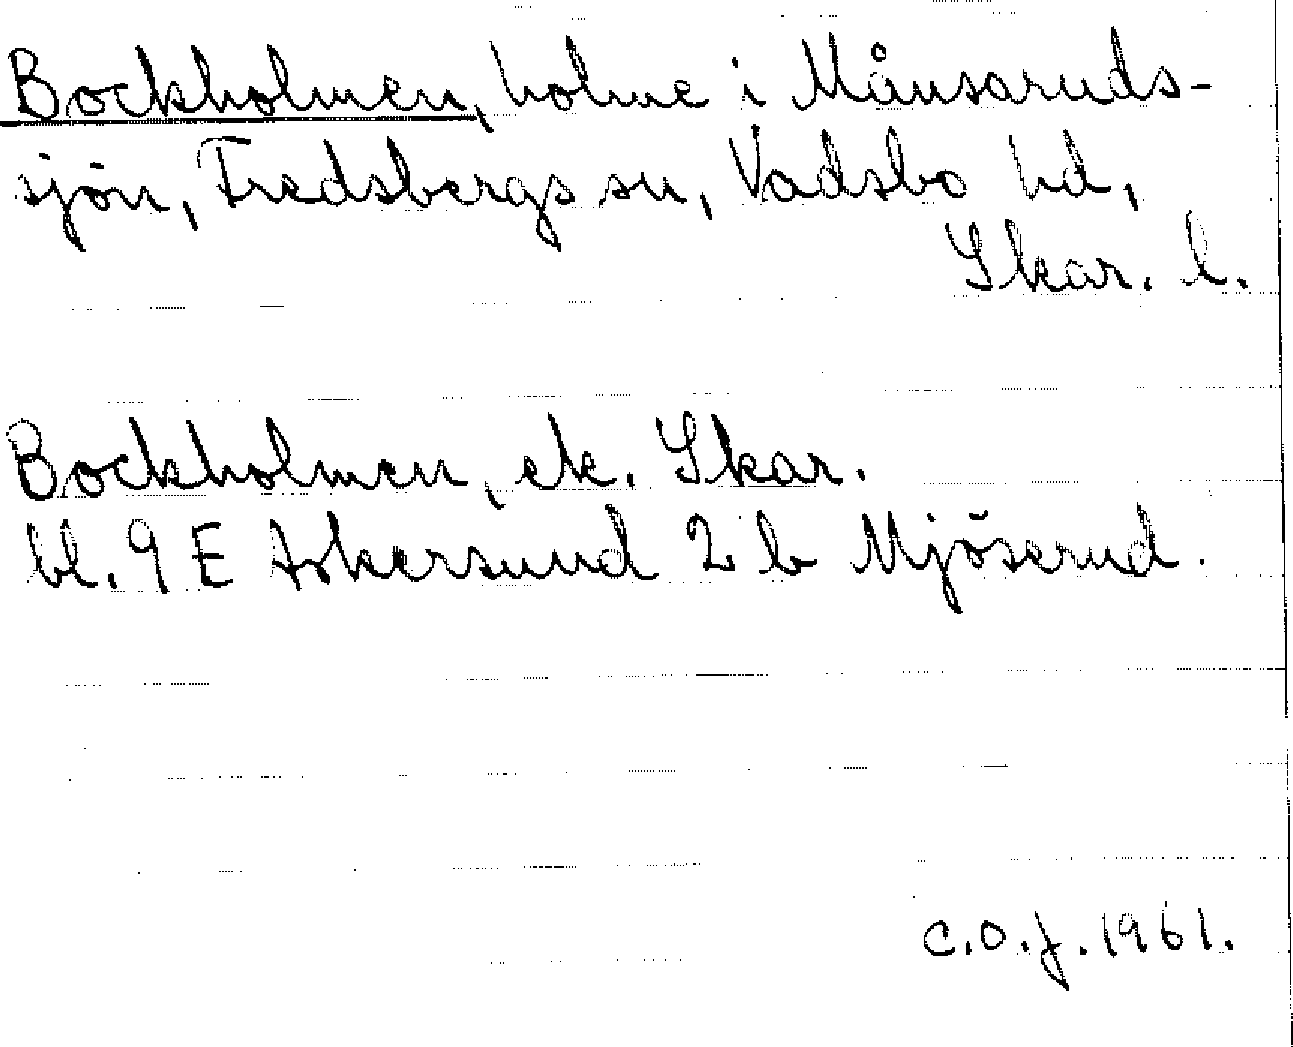 Bockholmen, holme i Månsaruds-
sjön, Fredsbergs sn, Vadsbo hd,
Skar. l.
Bockholmen, ek. Skar.
bl. 9 E Askersund 2 b Mjöserud.
C.O.J. 1961.